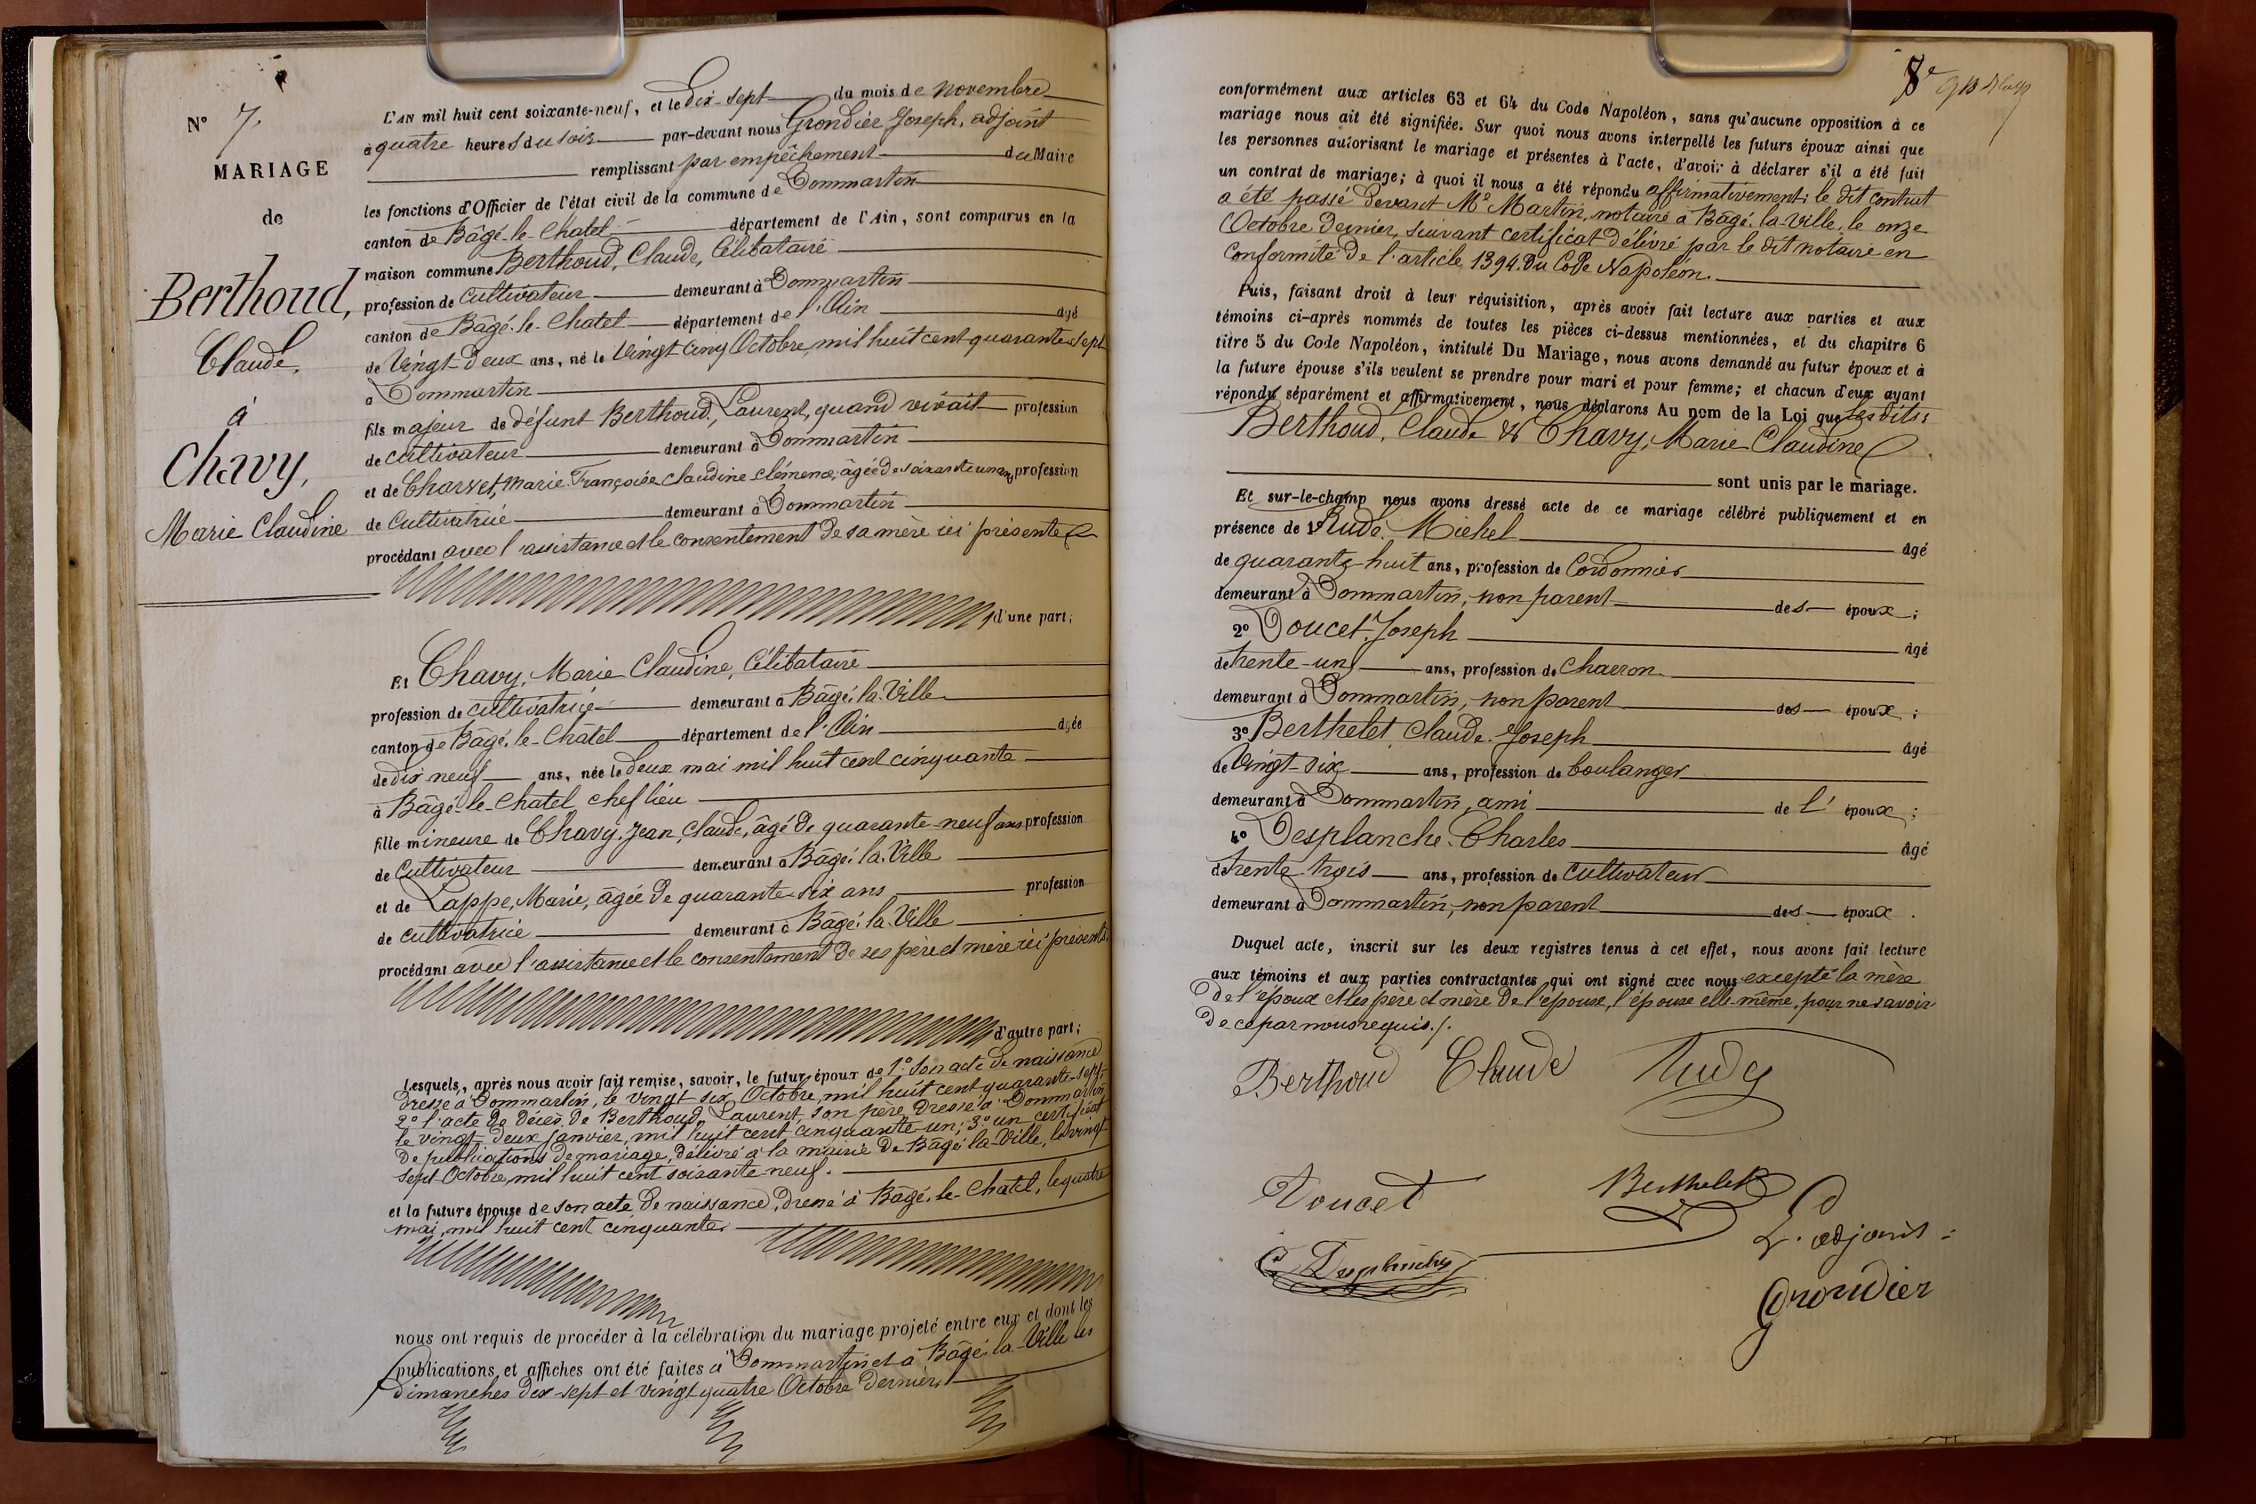 N° 7.
MARIAGE
de
Berthoud,
Claude,
à
Chavy,
Marie Claudine
L'AN mil huit cent soixante-neuf, et le Dix-sept du mois de novembre
à quatre heures du soir par-devant nous Grondier Joseph, adjoint
remplissant par empêchement du Maire
les fonctions d'Officier de l'état civil de la commune de Dommartin
canton de Bâgé-le-Châtel département de l'Ain, sont comparus en la
maison commune Berthoud, Claude, Célibataire
profession de Cultivateur demeurant à Dommartin
canton de Bâgé-le-Chatel département de l'Ain âgé
de Vingt-Deux ans, né le Vingt Cinq Octobre, mil huit cent quarante-sept
à Dommartin
fils majeur de défunt Berthoud, Laurent, quand vivait profession
de cultivateur demeurant à Dommartin
et de Charvet, Marie-Françoise Claudine Clémence, âgée de soixante un ans, profession
de Cultivatrice demeurant à Dommartin
procédant avec l'assistance et le consentement de sa mère ici présente
d'une part;
Et Chavy, Marie Claudine, Célibataire
profession de cultivatrice demeurant à Bâgé-la-Ville
canton de Bâgé-le-Châtel département de l'Ain âgée
de dix neuf ans, née le Deux mai mil huit cent cinquante
à Bâgé-le-Chatel, chef lieu
fille mineure de Chavy, Jean, Claude, âgé de quarante-neuf ans profession
de Cultivateur demeurant à Bâgé-la-Ville
et de Lappe, Marie, âgée de quarante-six ans profession
de cultivatrice demeurant à Bâgé-la-Ville
procédant avec l'assistance et le consentement de ses père et mère ici présents,
d'autre part;
Lesquels, après nous avoir fait remise, savoir, le futur époux de 1° son acte de naissance
dressé à Dommartin, le vingt six Octobre, mil huit cent quarante-sept,
2° l'acte de décès de Berthoud, Laurent son père, dressé à Dommartin
le vingt-deux Janvier, mil huit cent cinquante-un; 3° un certificat
de publications de mariage, délivré à la mairie de Bâgé-la-Ville, le vingt-
sept Octobre, mil huit cent soixante neuf.
et la future épouse de son acte de naissance, dressé à Bâgé-le-Chatel, le quatre
mai, mil huit cent cinquante,
nous ont requis de procéder à la célébration du mariage projeté entre eux et dont les
publications et affiches ont été faites à Dommartin et à Bâgé-la-Ville les
dimanches dix-sept et vingt quatre Octobre dernier,
8e
conformément aux articles 63 et 64 du Code Napoléon, sans qu'aucune opposition à ce
mariage nous ait été signifiée. Sur quoi nous avons interpellé les futurs époux ainsi que
les personnes autorisant le mariage et présentes à l'acte, d'avoir à déclarer s'il a été fait
un contrat de mariage; à quoi il nous a été répondu affirmativement; le dit contrat
a été passé devant Me Martin, notaire à Bâgé-la-ville, le onze
Octobre Dernier, suivant certificat délivré par le dit notaire en
Conformité de l'article 1394 du Code Napoléon.
Puis, faisant droit à leur réquisition, après avoir fait lecture aux parties et aux
témoins ci-après nommés de toutes les pièces ci-dessus mentionnées, et du chapitre 6
titre 5 du Code Napoléon, intitulé Du Mariage, nous avons demandé au futur époux et à
la future épouse s'ils veulent se prendre pour mari et pour femme; et chacun d'eux ayant
répondu séparément et affirmativement, nous déclarons Au nom de la Loi que Les dits:
Berthoud, Claude & Chavy, Marie Claudine
sont unis par le mariage.
Et sur-le-champ nous avons dressé acte de ce mariage célébré publiquement et en
présence de 1° Rude, Michel âgé
de quarante-huit ans, profession de Cordonnier
demeurant à Dommartin, non parent des époux;
2° Doucet, Joseph âgé
de trente-un ans, profession de charron
demeurant à Dommartin, non parent des époux;
3° Berthelet, Claude-Joseph âgé
de Vingt-six ans, profession de boulanger
demeurant à Dommartin, ami de l'époux;
4° Desplanche, Charles âgé
de trente-trois ans, profession de cultivateur
demeurant à Dommartin, non parent des époux.
Duquel acte, inscrit sur les deux registres tenus à cet effet, nous avons fait lecture
aux témoins et aux parties contractantes, qui ont signé avec nous excepté la mère
de l'époux et les père et mère de l'épouse, l'épouse elle-même, pour ne savoir
de ce par nous requis./.
Berthoud Claude Rude
Doucet Berthelet
C Desplanche L'adjoint:
Grondier